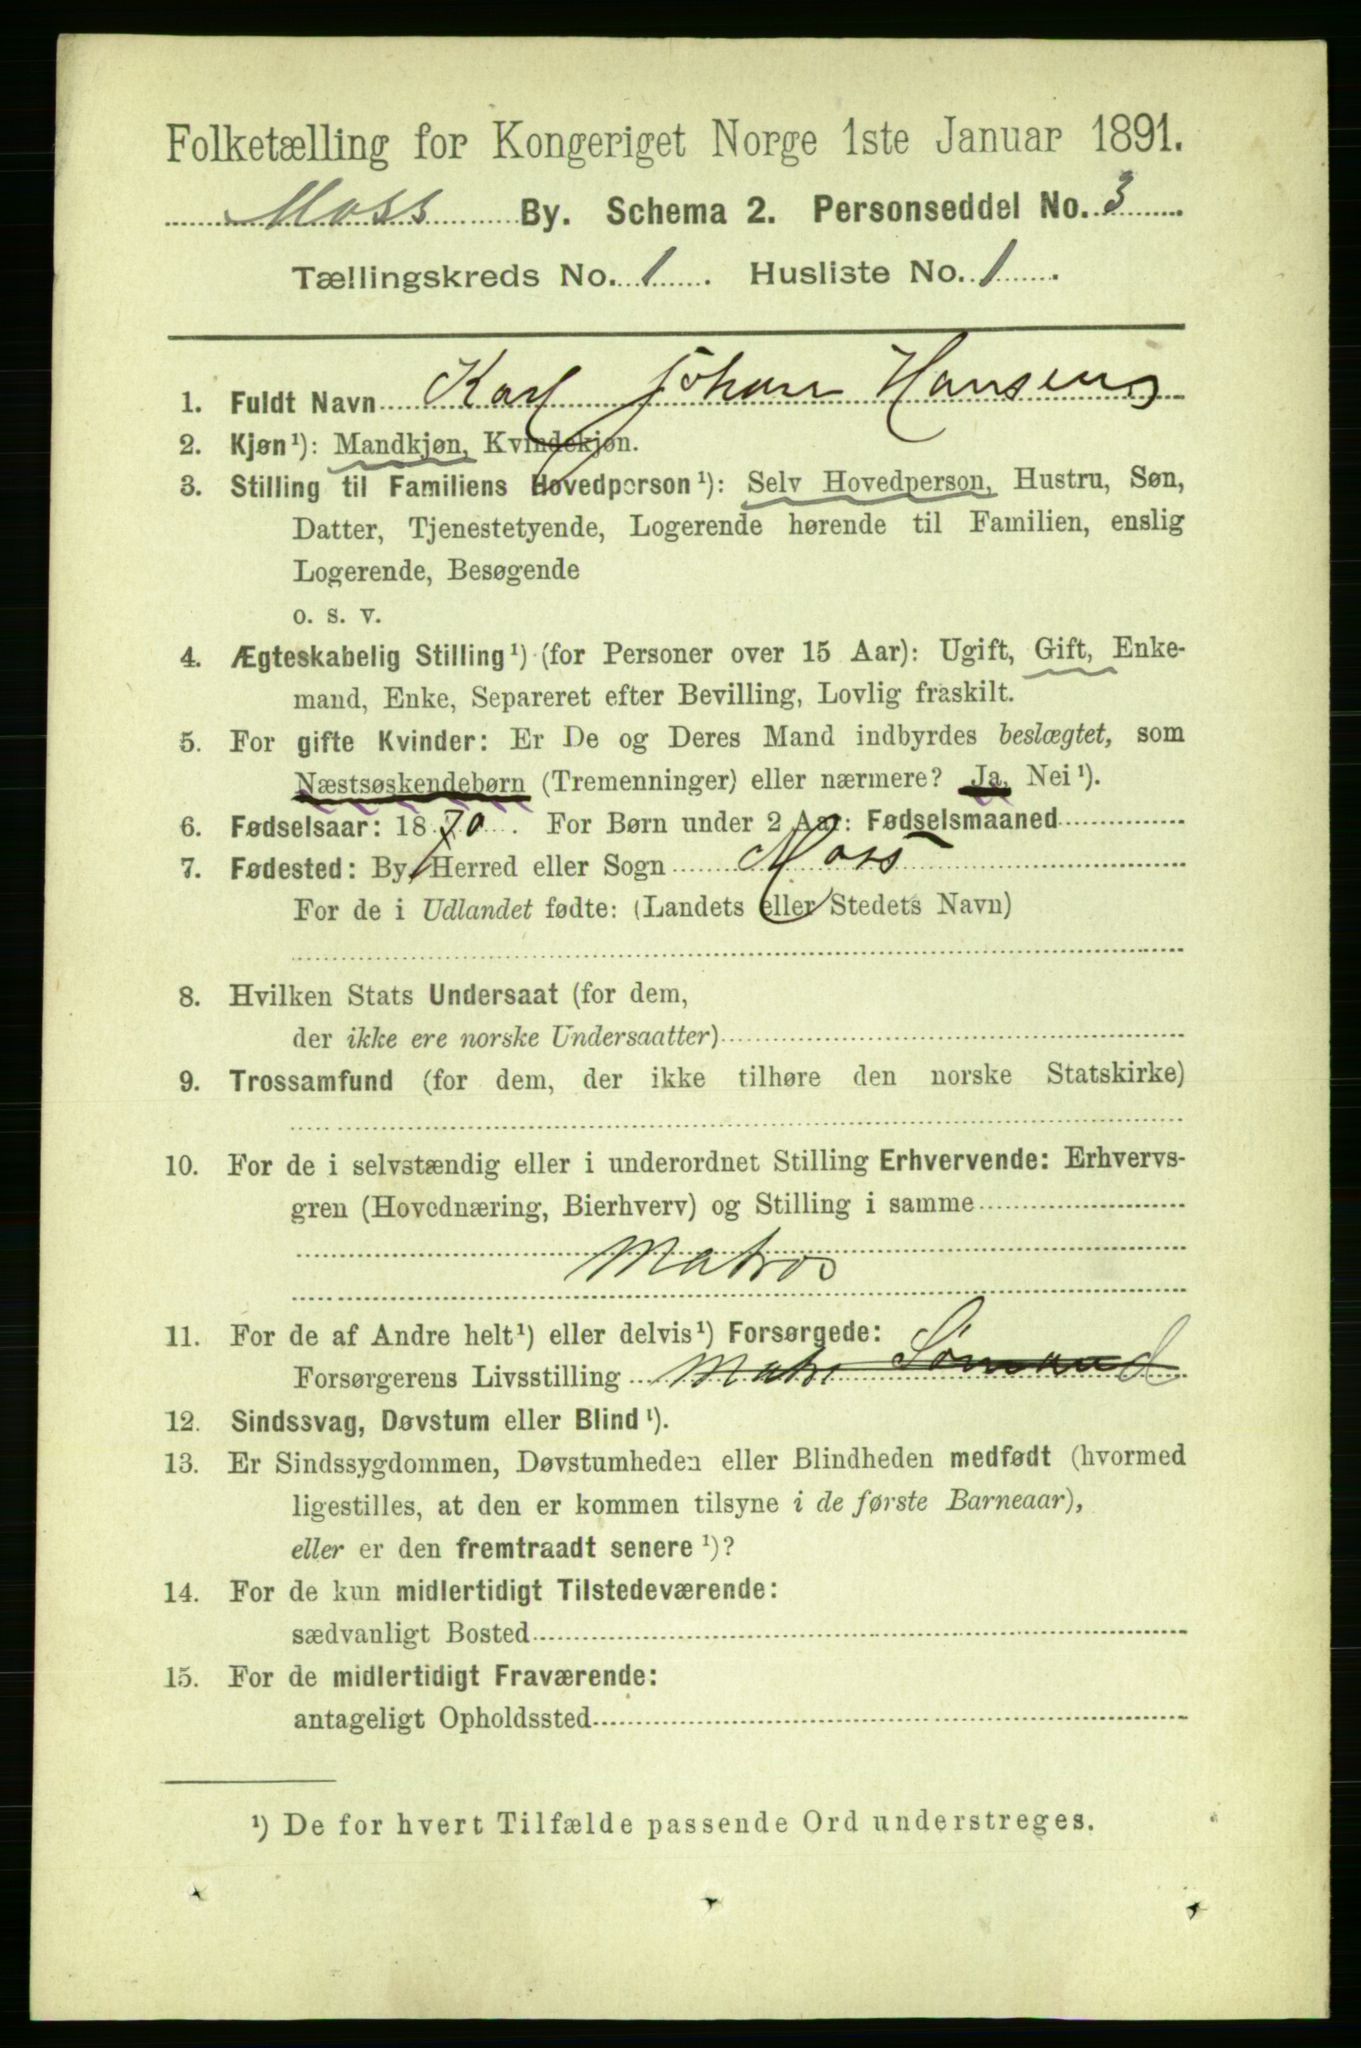 Folketælling for Kongeriget Norge 1ste Januar 1891.
Moss By. Schema 2. Personseddel No. 3
Tællingskreds No. 1. Husliste No. 1.
1. Fuldt Navn Karl Johan Hansen
2. Kjøn¹): Mandkjøn, Kvindekjøn.
3. Stilling til Familiens Hovedperson¹): Selv Hovedperson, Hustru, Søn,
Datter, Tjenestetyende, Logerende hørende til Familien, enslig
Logerende, Besøgende
o. s. v.
4. Ægteskabelig Stilling¹) (for Personer over 15 Aar): Ugift, Gift, Enke-
mand, Enke, Separeret efter Bevilling, Lovlig fraskilt.
5. For gifte Kvinder: Er De og Deres Mand indbyrdes beslægtet, som
Næstsøskendebørn (Tremenninger) eller nærmere? Ja, Nei¹).
6. Fødselsaar: 1870. For Børn under 2 Aar: Fødselsmaaned
7. Fødested: By, Herred eller Sogn Moss
For de i Udlandet fødte: (Landets eller Stedets Navn)
8. Hvilken Stats Undersaat (for dem,
der ikke ere norske Undersaatter)
9. Trossamfund (for dem, der ikke tilhøre den norske Statskirke)
10. For de i selvstændig eller i underordnet Stilling Erhvervende: Erhvervs-
gren (Hovednæring, Bierhverv) og Stilling i samme
Matros
11. For de af Andre helt¹) eller delvis¹) Forsørgede:
Forsørgerens Livsstilling Matr Sömand
12. Sindssvag, Døvstum eller Blind¹).
13. Er Sindssygdommen, Døvstumheden eller Blindheden medfødt (hvormed
ligestilles, at den er kommen tilsyne i de første Barneaar),
eller er den fremtraadt senere¹)?
14. For de kun midlertidigt Tilstedeværende:
sædvanligt Bosted
15. For de midlertidigt Fraværende:
antageligt Opholdssted
¹) De for hvert Tilfælde passende Ord understreges.